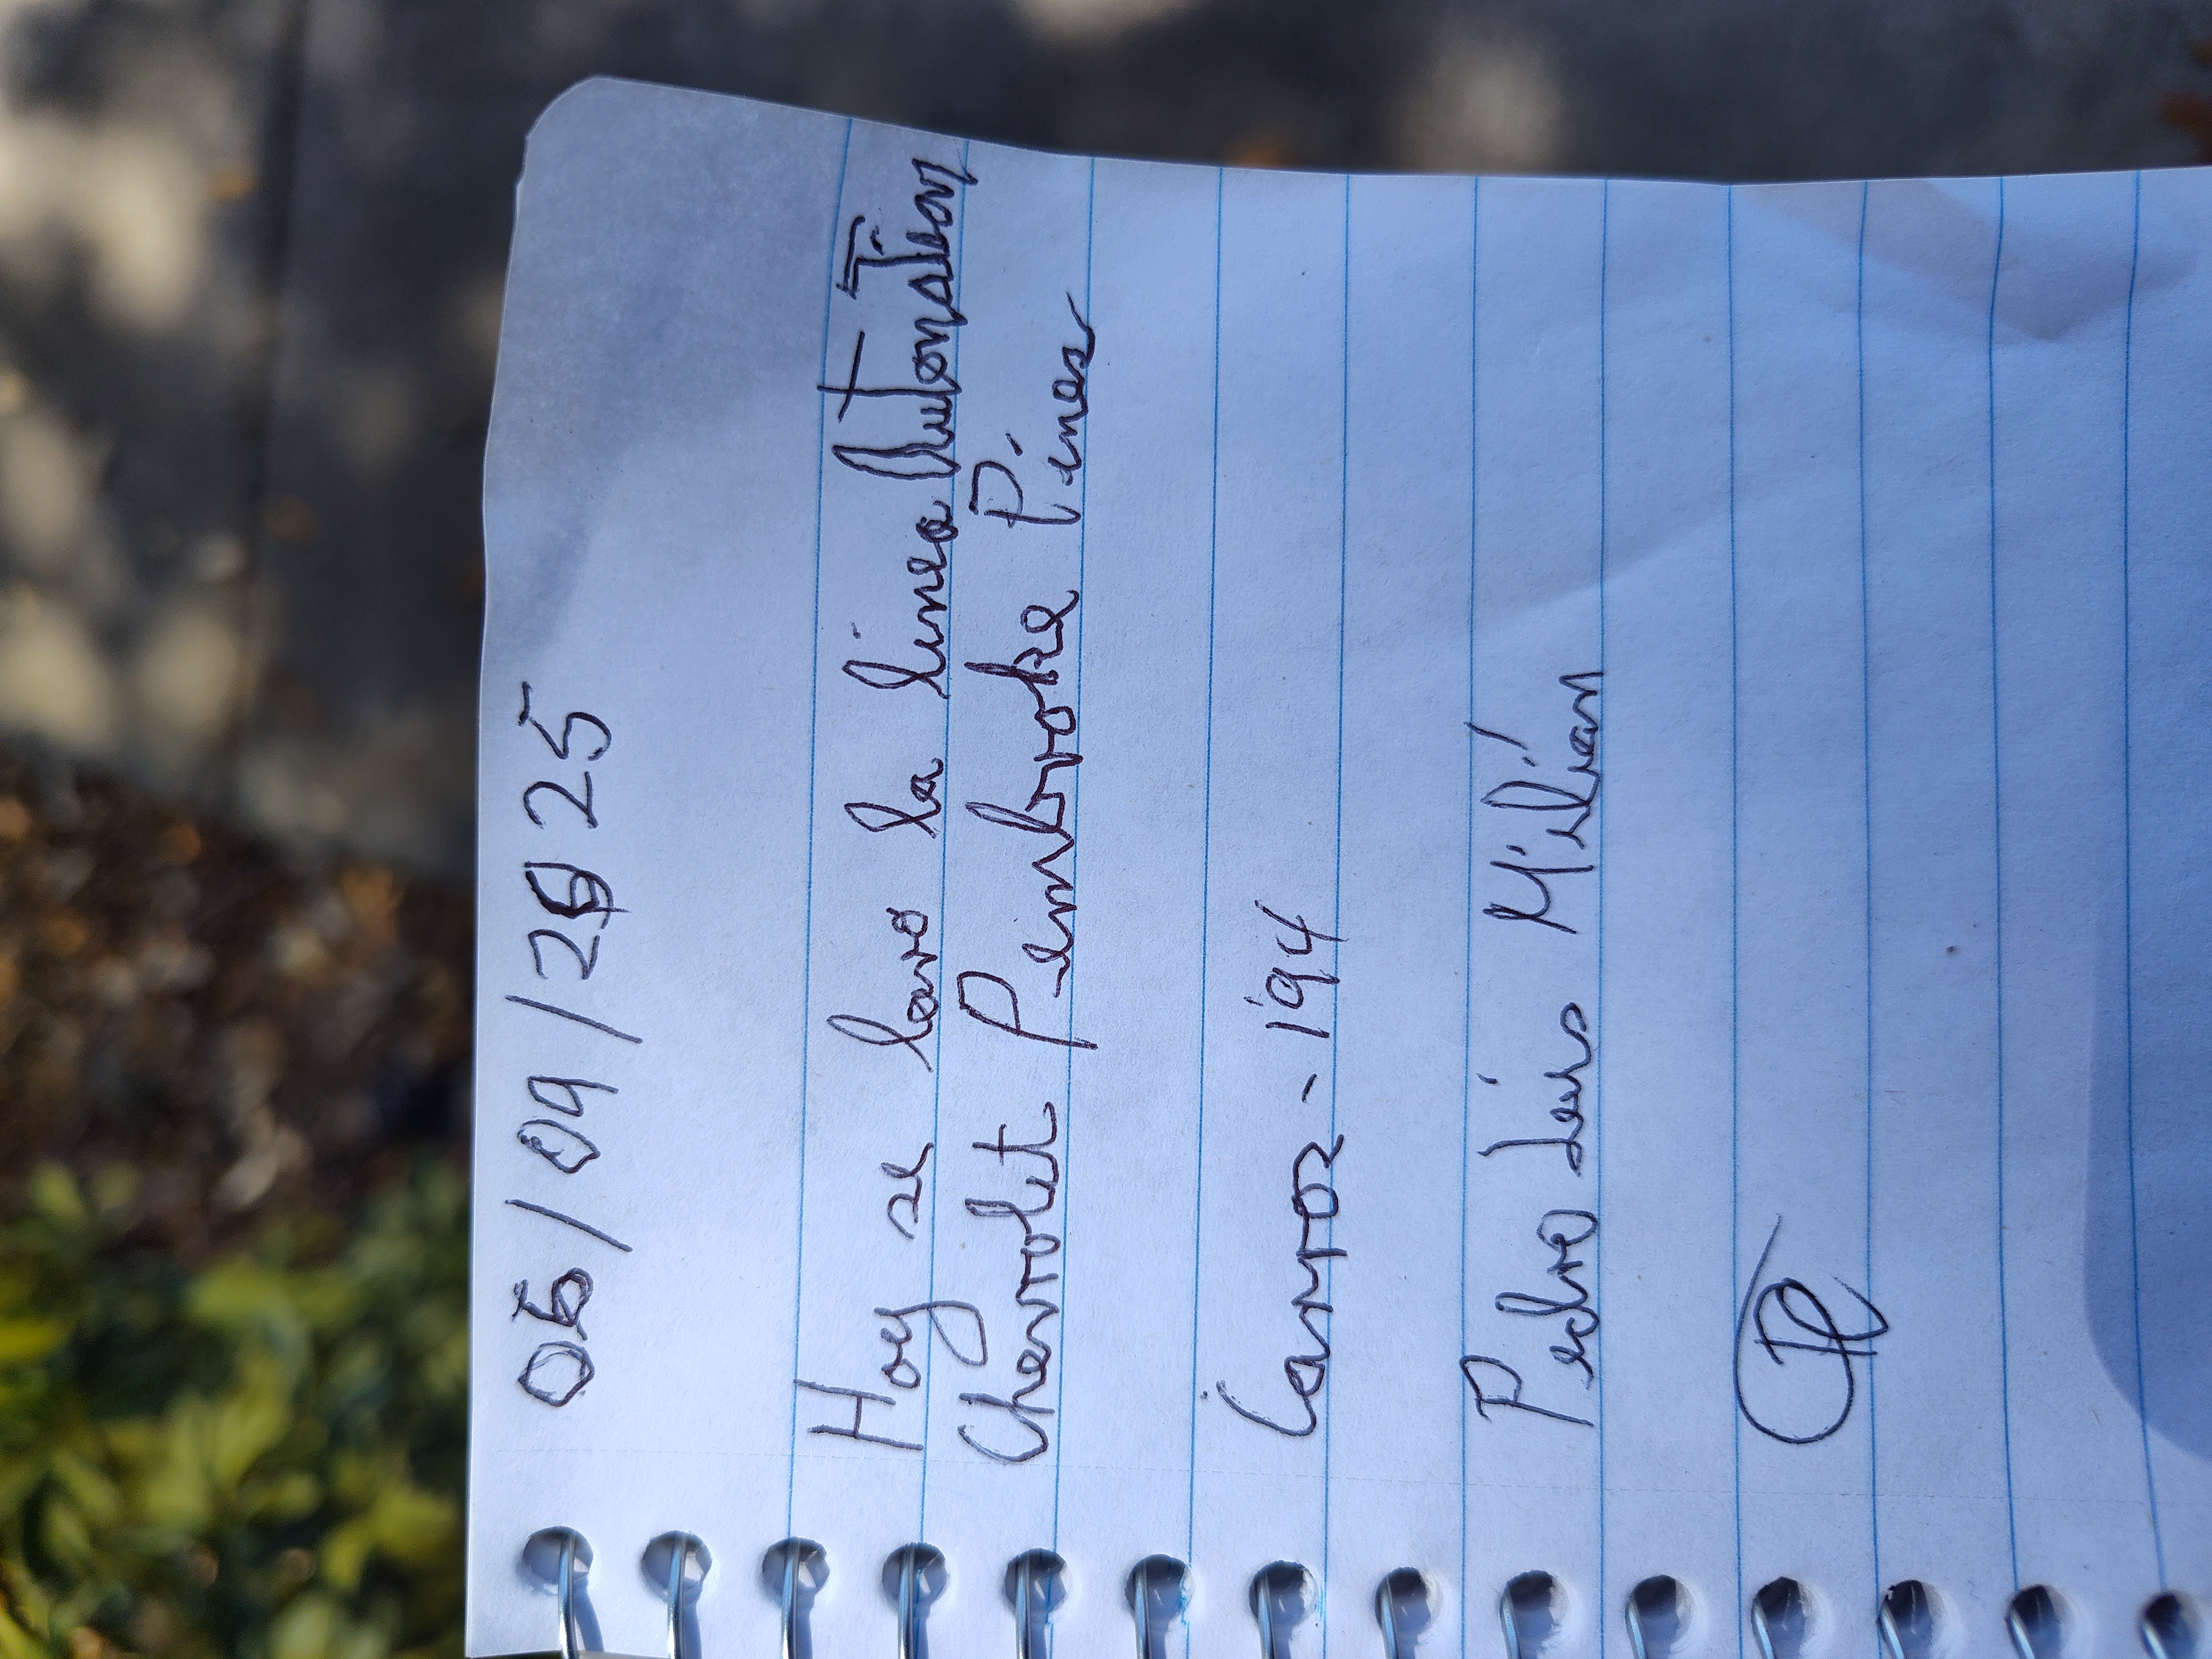 06/09/2025
Hoy se lavo la linea AutoNation
Chevrolet Pembroke Pines
Carros - 194
Pedro Luis Milián